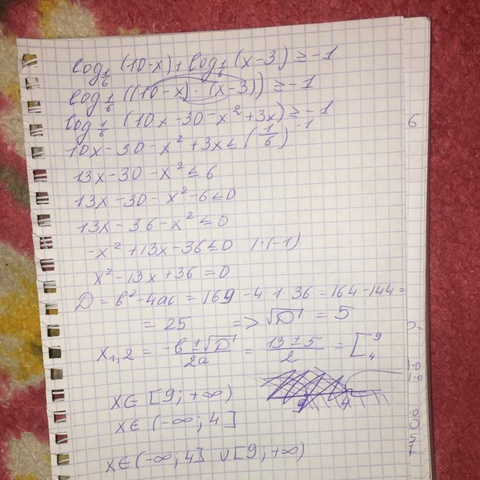 log₁/₆ (10-x) + log₁/₆ (x-3) ≥ -1
log₁/₆ ((10-x) · (x-3)) ≥ -1
log₁/₆ (10x - 30 - x² + 3x) ≥ -1
10x - 30 - x² + 3x ≤ (1/6)⁻¹
13x - 30 - x² ≤ 6
13x - 30 - x² - 6 ≤ 0
13x - 36 - x² ≤ 0
-x² + 13x - 36 ≤ 0 |·(-1)
x² - 13x + 36 = 0
D = b² - 4ac = 169 - 4·1·36 = 164 - 144 =
= 25 => √D = 5
x₁,₂ = (-b ± √D)/2a = (13 ± 5)/2 = [9 4
9 4
x ∈ [9; +∞)
x ∈ (-∞; 4]
x ∈ (-∞; 4] ∪ [9; +∞)
6